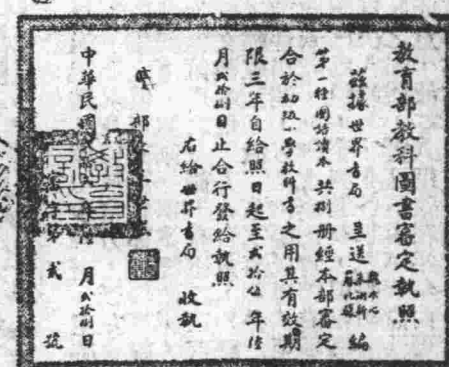 教育部教科圖書審定執照
茲據世界書局呈送 魏冰心 朱翊新 蘇兆驤 編
第一種國語讀本共捌冊經本部審定
合於初級小學教科書之用其有效期
限三年自給照日起至貳拾伍年陸
月貳拾捌日止合行發給執照
右給世界書局 收執
部長
中華民國 年陸月貳拾捌日
第貳號